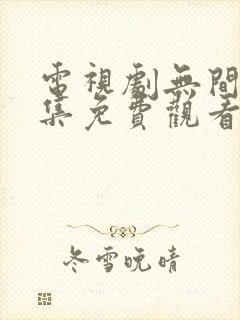 電視劇無間
集免費觀看
冬雪晚晴